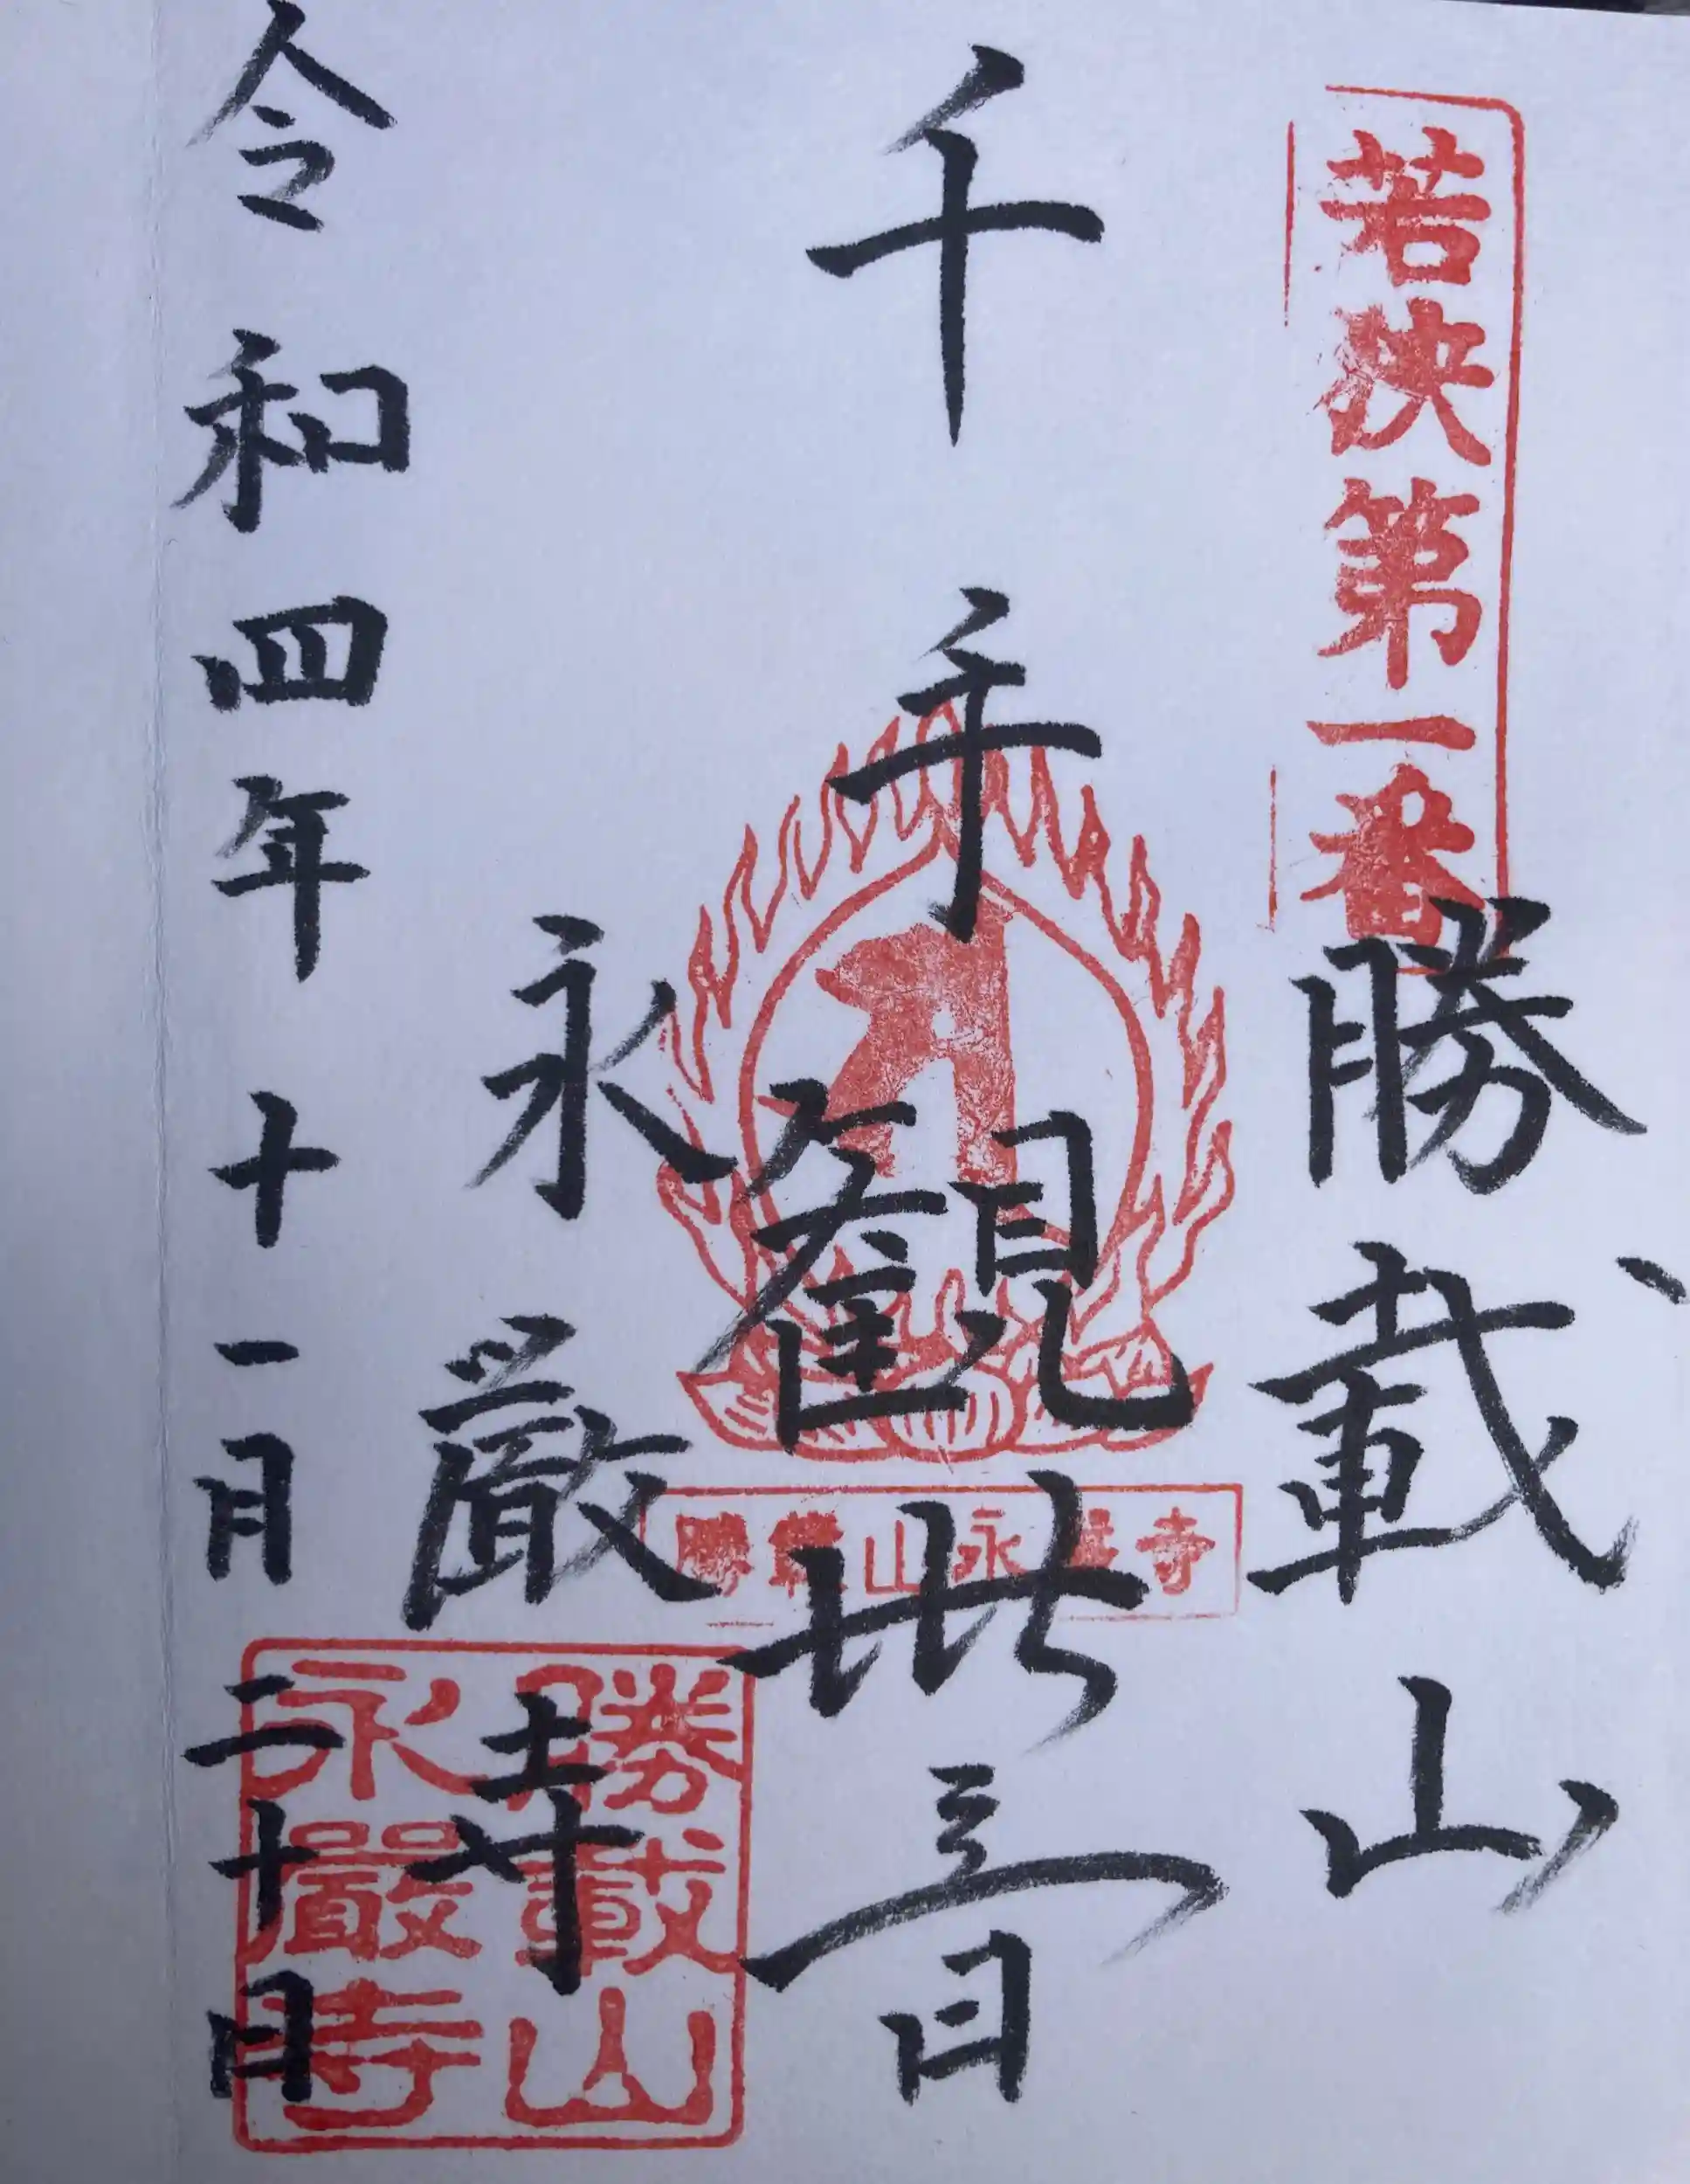 若狭第一番
勝載山
千手観世音
勝載山永嚴寺
永厳寺
勝載山
永嚴寺
令和四年十一月二十日